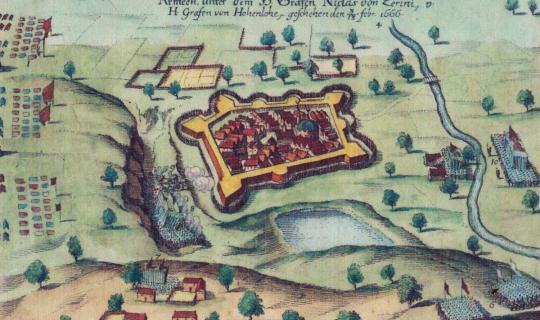 Armeen, unter dem H. Grafen, Niclas von Serini, v
H Grafen von Hohenlohe, geschehen den febr. 1666